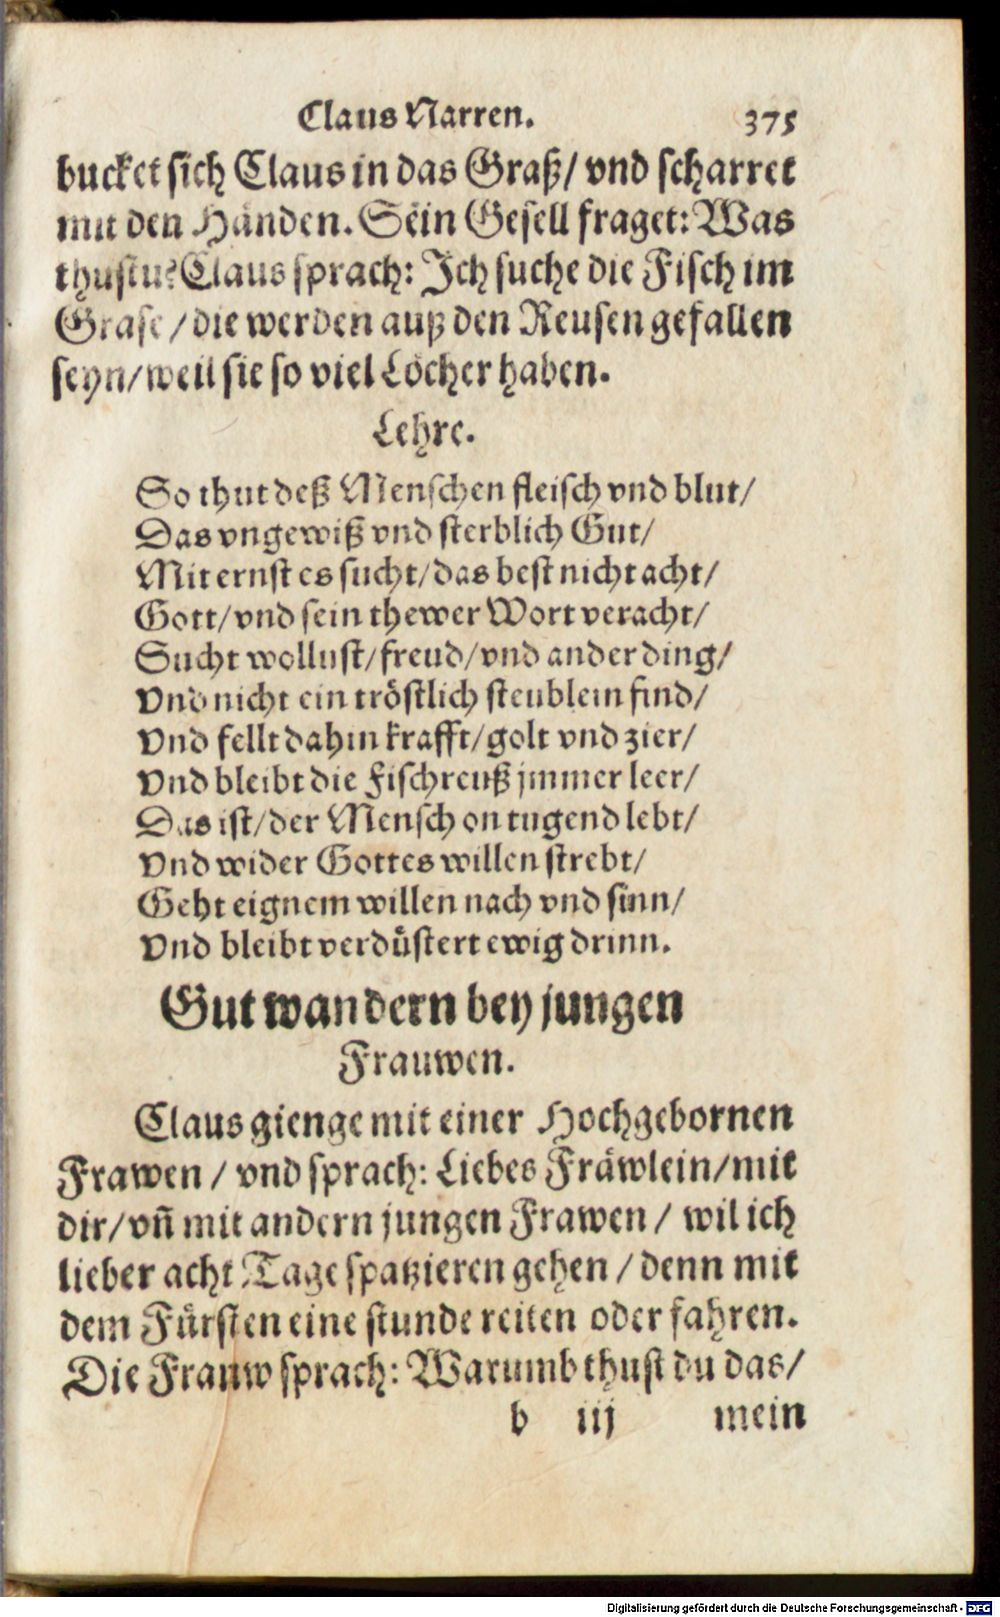 Claus Narren. 375
bucket sich Claus in das Graß/ vnd scharret
mit den Händen. Sein Gesell fraget: Was
thustu? Claus sprach: Ich suche die Fisch im
Grase / die werden auß den Reusen gefallen
seyn/weil sie so viel Löcher haben.
Lehre.
So thut deß Menschen fleisch vnd blut/
Das vngewiß vnd sterblich Gut/
Mit ernst es sucht/das best nicht acht/
Gott/vnd sein thewer Wort veracht/
Sucht wollust/freud/vnd ander ding/
Vnd nicht ein tröstlich steublein find/
Vnd fellt dahin krafft/golt vnd zier/
Vnd bleibt die Fischreuß jmmer leer/
Das ist/der Mensch on tugend lebt/
Vnd wider Gottes willen strebt/
Geht eignem willen nach vnd sinn/
Vnd bleibt verdüstert ewig drinn.
Gut wandern bey jungen
Frauwen.
Claus gienge mit einer Hochgebornen
Frawen / vnd sprach: Liebes Fräwlein/mit
dir/vñ mit andern jungen Frawen / wil ich
lieber acht Tage spatzieren gehen / denn mit
dem Fürsten eine stunde reiten oder fahren.
Die Frauw sprach: Warumb thust du das/
b iij mein
Digitalisierung gefördert durch die Deutsche Forschungsgemeinschaft - DFG